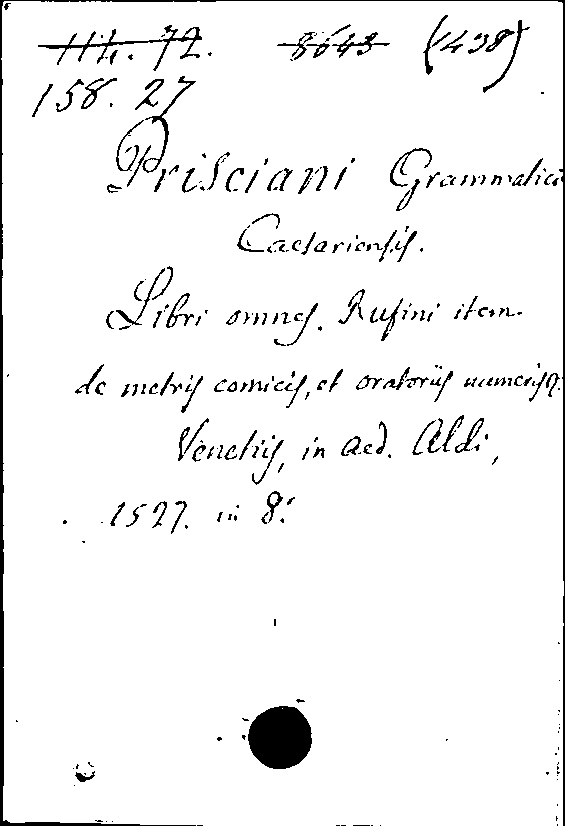 114. 72. 8643 (438)
158. 27
Prisciani Grammatici
Caesariensis.
Libri omnes. Rufini item
de metris comicis, et oratoriis numeris
Venetiis, in aed. Aldi,
1527. in 8.